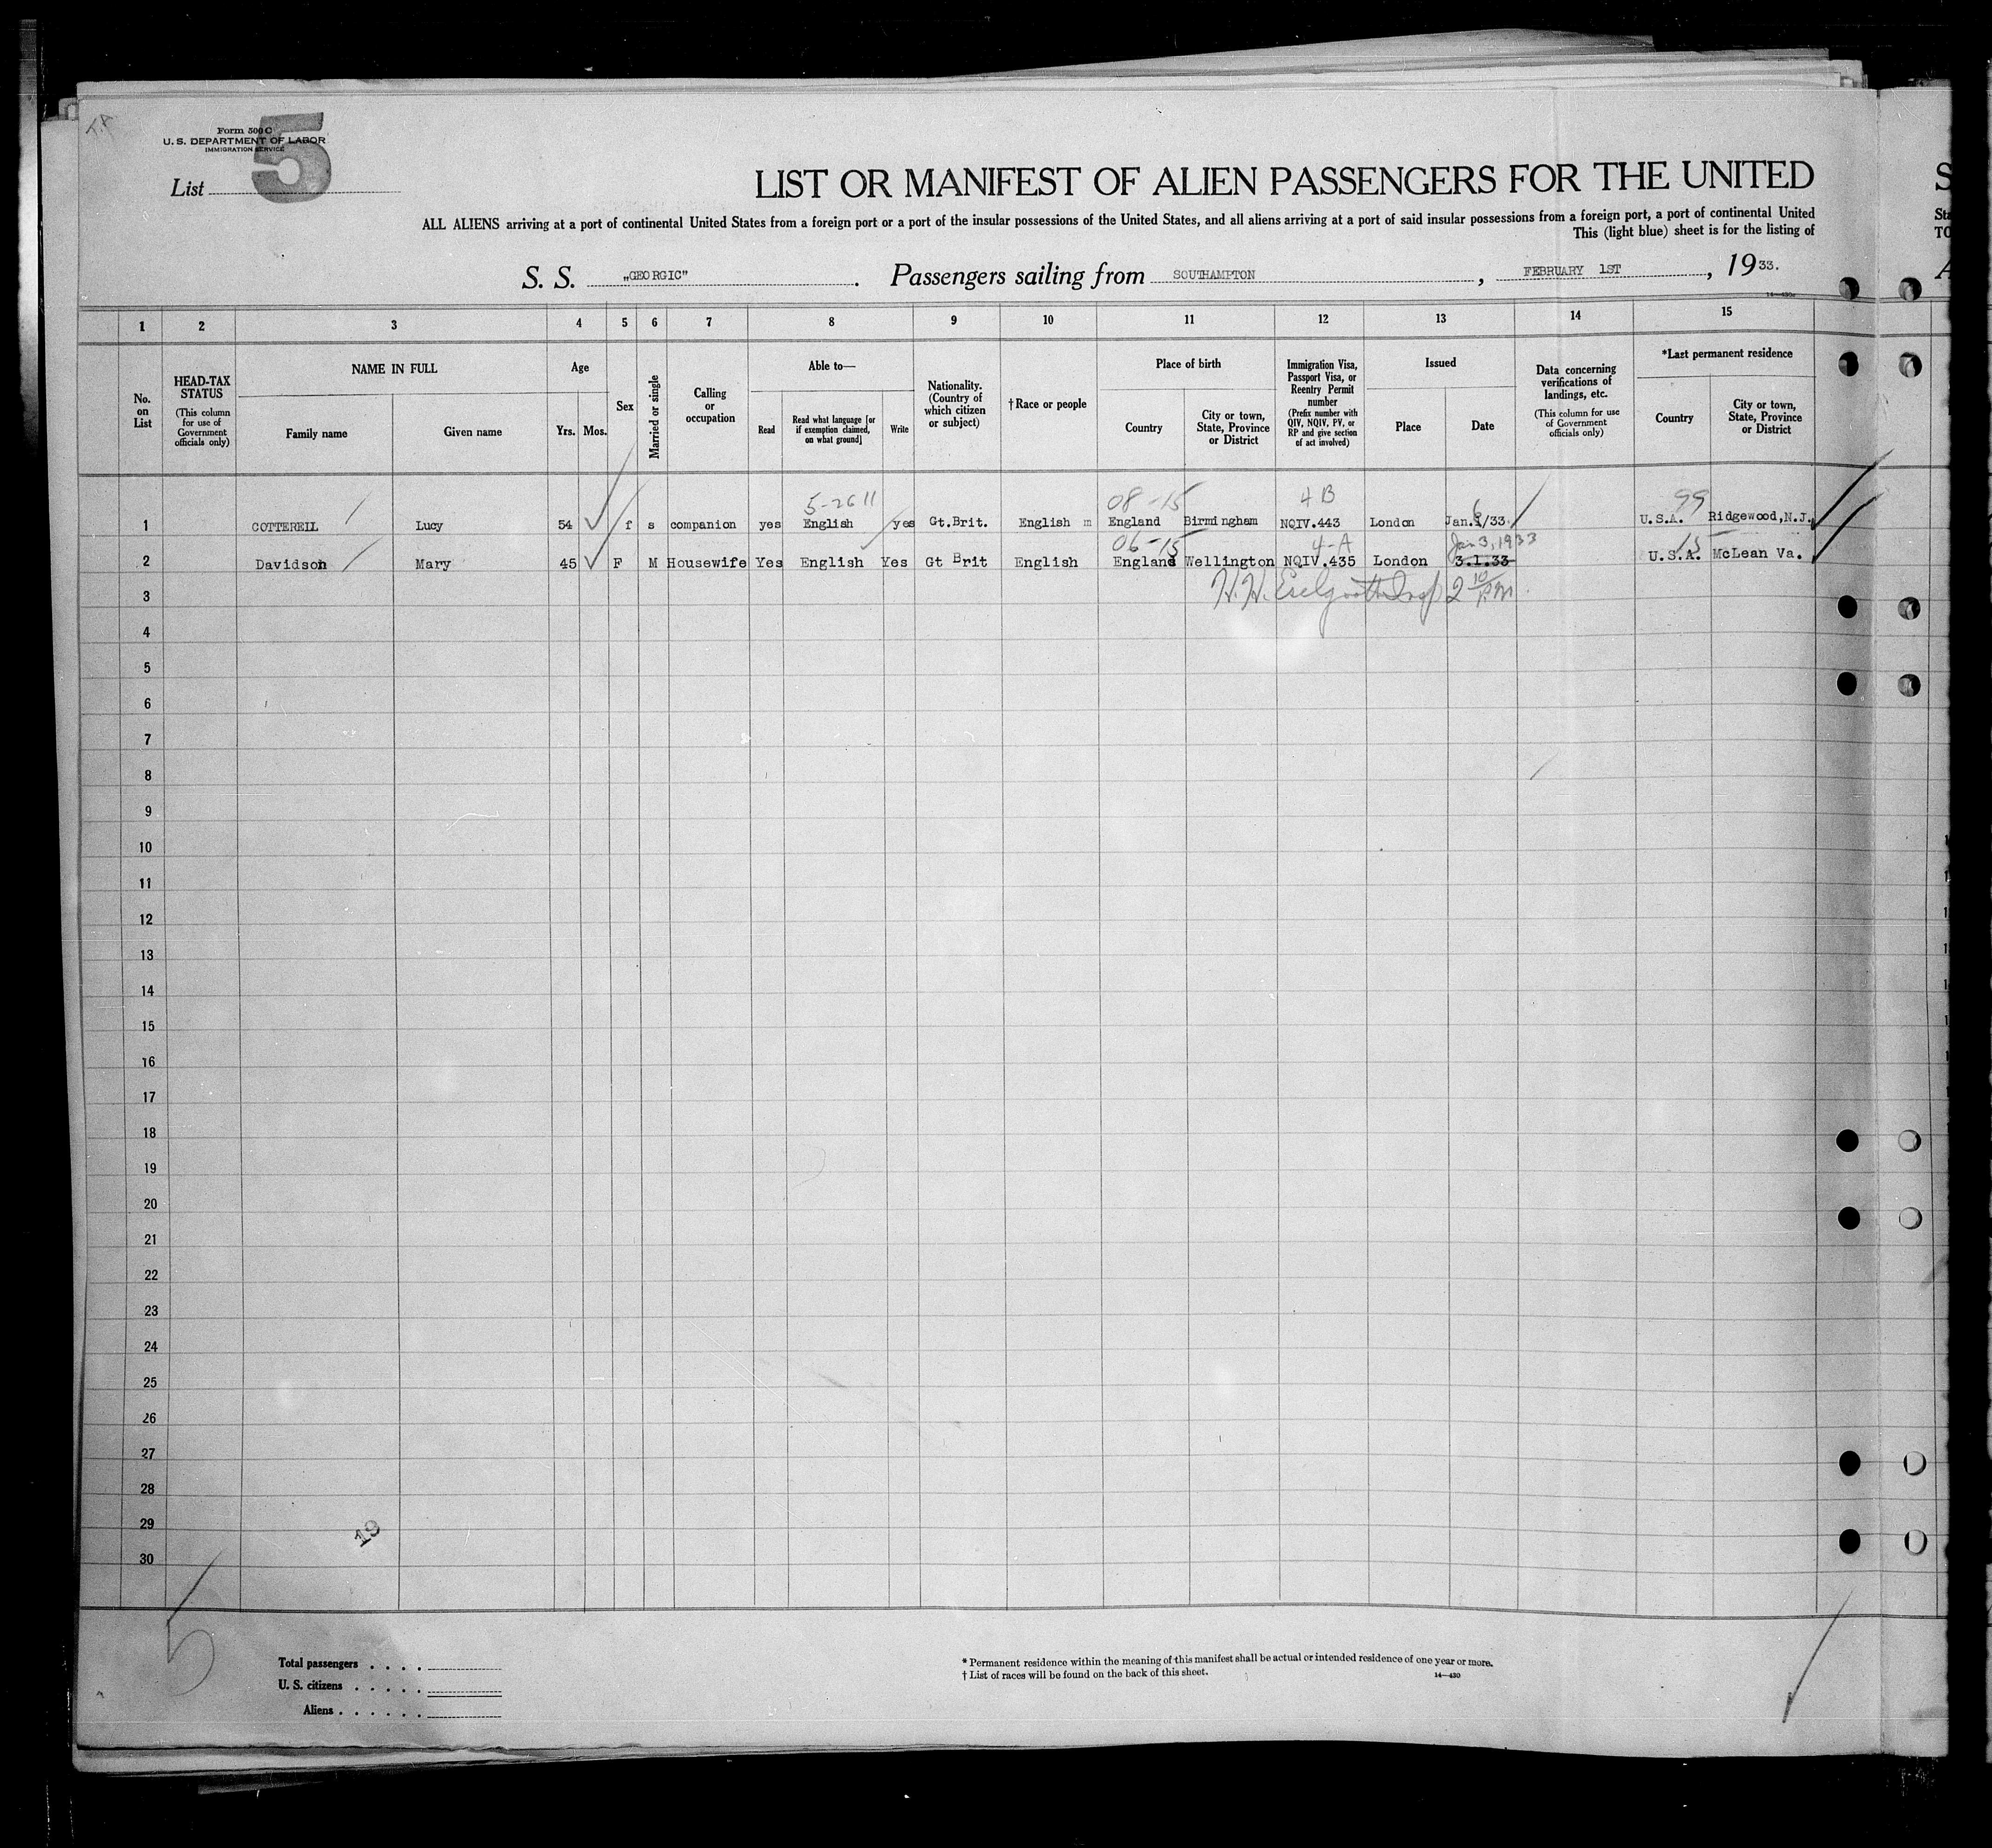 5
Form 500 C
U. S. DEPARTMENT OF LABOR
IMMIGRATION SERVICE
List
LIST OR MANIFEST OF ALIEN PASSENGERS FOR THE UNITED
ALL ALIENS arriving at a port of continental United States from a foreign port or a port of the insular possessions of the United States, and all aliens arriving at a port of said insular possessions from a foreign port, a port of continental United
This (light blue) sheet is for the listing of
S. S. „GEORGIC" . Passengers sailing from SOUTHAMPTON , FEBRUARY 1ST , 19 33.
1 2 3 4 5 6 7 8 9 10 11 12 13 14 15
No. on List
HEAD-TAX STATUS
(This column for use of Government officials only)
NAME IN FULL
Family name Given name
Age
Yrs. Mos.
Sex
Married or single
Calling or occupation
Able to—
Read
Read what language [or if exemption claimed, on what ground]
Write
Nationality. (Country of which citizen or subject)
†Race or people
Place of birth
Country
City or town, State, Province or District
Immigration Visa, Passport Visa, or Reentry Permit number
(Prefix number with QIV, NQIV, PV, or RP and give section of act involved)
Issued
Place Date
Data concerning verifications of landings, etc.
(This column for use of Government officials only)
*Last permanent residence
Country
City or town, State, Province or District
5-2611 08-15 4B 99
1 COTTERELL Lucy 54 f s companion yes English yes Gt.Brit. English m England Birmingham NQIV.443 London Jan. /33. U.S.A. Ridgewood,N.J.
06-15 4-A Jan 3, 1933 15
2 Davidson Mary 45 F M Housewife Yes English Yes Gt Brit English England Wellington NQIV.435 London 3.1.33 U.S.A. McLean Va.
3 H.H. Insp 2 10 P.M.
4
5
6
7
8
9
10
11
12
13
14
15
16
17
18
19
20
21
22
23
24
25
26
27
28
29
19
30
5
Total passengers . . . .
U. S. citizens . . . . .
Aliens . . . . . .
* Permanent residence within the meaning of this manifest shall be actual or intended residence of one year or more.
† List of races will be found on the back of this sheet.
14—430